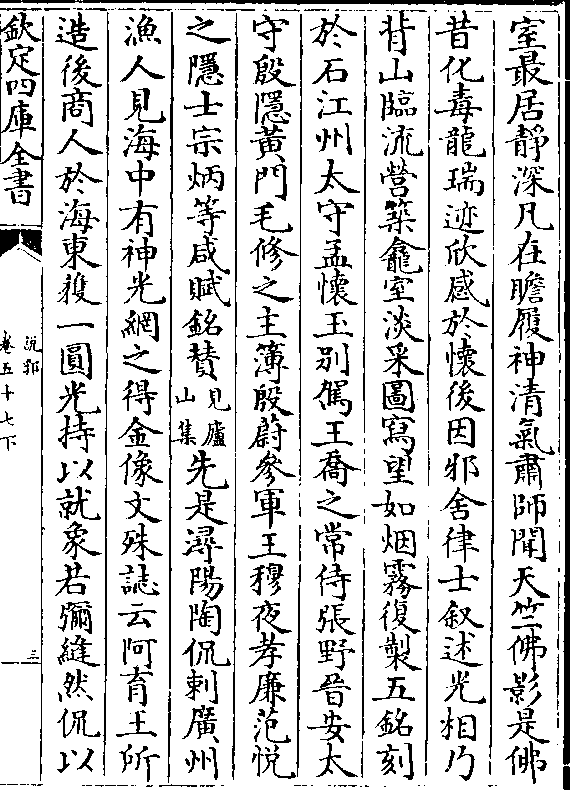 室最居靜深凡在瞻履神清氣肅師聞天竺佛影是佛
昔化毒龍瑞迹欣感於懷後因邪舍律士叙述光相乃
背山臨流營築龕室淡采圖寫望如烟霧復製五銘刻
於石江州太守孟懷玉别駕王喬之常侍張野晉安太
守殷隱黄門毛修之主簿殷蔚參軍王穆夜孝廉范悦
之隱士宗炳等咸賦銘贊見廬山集先是潯陽陶侃刺廣州
漁人見海中有神光網之得金像文殊誌云阿育王所
造後商人於海東獲一圓光持以就象若彌縫然侃以
欽定四庫全書
説郛
卷五十七下
三